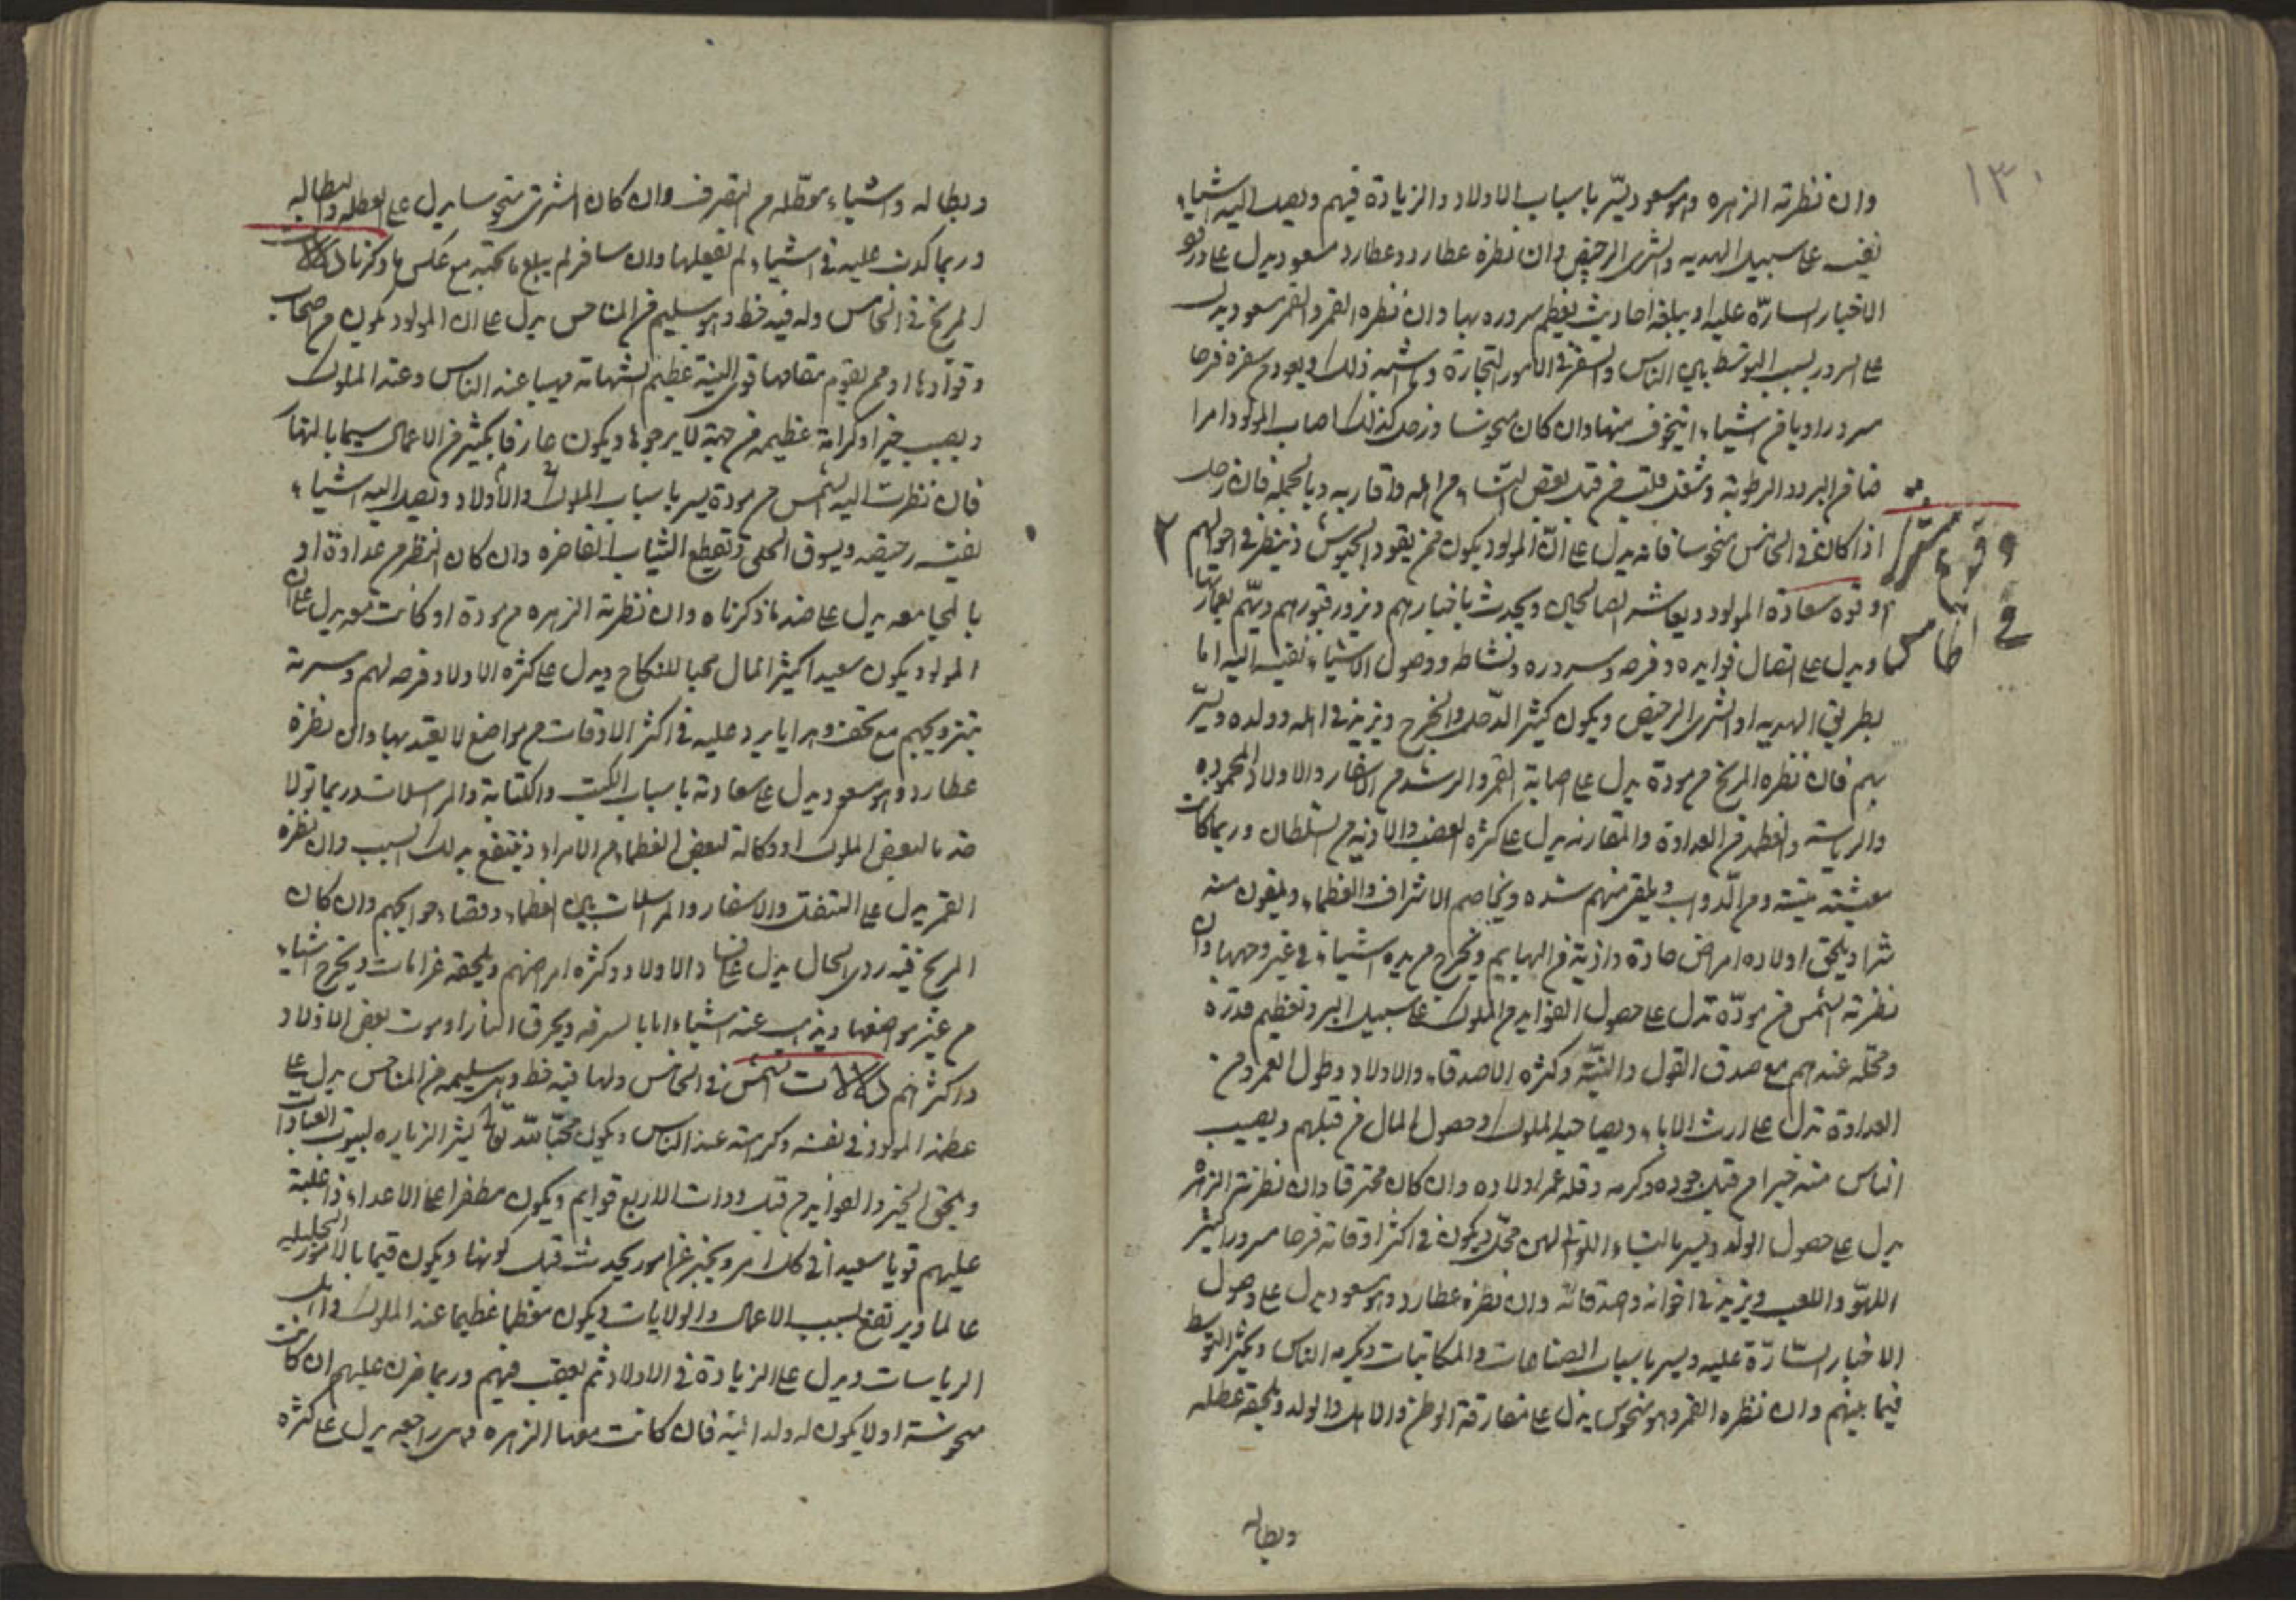 ١٣٠
وان نظرته الزهره وهو مسعود يسّر باسباب الاولاد والزيادة فيهم ويصل اليه اشياء
نفيسه على سبيل الهديه والشرى الرخيص وان نظره عطارد وعطارد مسعود يدل على ورود
الاخبار السارّه عليه او يبلغه احاديث يعظم سروره بها وان نظره القمر والقمر مسعود يدل
على السرور بسبب التوسّط بين الناس والسفر في الامور التجارة وما اشبه ذلك ويعود من سفره فرحا
مسرورا ويامن اشياء يتخوف منها وان كان منحوسا وزحل كذلك اصاب المولود امراضا
من البرد والرطوبة وشغل قلب من قبل بعض النساء من اهله واقاربه وبالجمله فان زحل
وقوع المشتري
في الخامس
اذا كان في الخامس منحوسا فانه يدل على انّ المولود يكون ممن يقود الجيوش وينظر في احوالهم
وقوه سعادة المولود ويعاشر الصالحين ويحدث باخبارهم ويزور قبورهم ويهتم بعمارتها
ويدل على اتصال فوايده وفرحه وسروره ونشاطه ووصول الاشياء نفيسه اليه اما
بطريق الهديه او الشرى الرخيص ويكون كثير الدخل والخرج ويزيد في اهله وولده ويسّر
بهم فان نظره المريخ من مودة يدل على اصابة القمر والرشد من الاسفار والاولاد المحموده
والرياسه والعظم من العداوة والمقارنه يدل على كثره الغضب والاذيه من السلطان وربما كانت
معيشته ومن الدواب ويلقى منهم شده ويخاصم الاشراف والعظماء ويلقون منه
شرا ويلحق اولاده امراض حادة واذية من البهايم ويخرج من يده اشياء في غير وجهها وان
نظرته الشمس من مودّة تدل على حصول الفوايد من الملوك على سبيل البر وتعظيم قدره
ومحله عندهم مع صدق القول والنيّة وكثره الاصدقاء والاولاد وطول العمر ومن
العداوة تدل على ارث الاباء ويصاحب الملوك وحصول المال من قبلهم ويصيب
الناس منه خيرا من قبل جوده وكرمه وقله عمر اولاده وان كان محترقا وان نظرته الزهره
يدل على حصول الولد ويسر بالنساء اللواتي لهن محل ويكون في اكثر اوقاته فرحا مسرورا كثير
اللهو واللعب ويزيد في اخوانه وصدقائه وان نظره عطارد وهو مسعود يدل على وصول
الاخبار السّارّة عليه ويسر باسباب الصناعات والمكاتبات ويكرمه الناس ويكثر التوسط
فيما بينهم وان نظره القمر وهو منحوس يدل على مفارقة الوطن والاهل والولد ويلحقه عطله
وبطاله
وبطاله واشياء معطّله من التصرف وان كان المشتري منحوسا يدل على العطله والبطاله
وربما كذب عليه في اشياء لم يفعلها وان سافر لم يبلغ ما يحبه مع عكس ما ذكرنا دلالات
المريخ في الخامس وله فيه حظ وهو سليم من المناحس يدل على ان المولود يكون من اصحاب
وقوّادها او ممن يقوم مقامها قوى البنية عظيم الشهامة مهيبا عند الناس وعند الملوك
ويصيب خيرا وكرامة عظيمه من جهة لا يرجوها ويكون عارفا بكثير من الاعمال سيما بالقتال
فان نظرت اليه الشمس من مودة يسر باسباب الملوك والاولاد ويصل اليه اشياء
نفيسه رخيصه ويسوق الحلى وتقطيع الثياب الفاخره وان كان النظر من عداوة او
بالمجامعه يدل على ضد ما ذكرناه وان نظرته الزهره من مودة او كانت معه يدل على ان
المولود يكون سعيدا كثير المال محبا للنكاح ويدل على كثره الاولاد وفرحه لهم ومسرته
بتزويجهم مع تحف وهدايا يرد عليه في اكثر الاوقات من مواضع لا يعتد بها وان نظره
عطارد وهو مسعود يدل على سعادته باسباب الكتب والكتابة والمراسلات وربما تولا
خدمة لبعض الملوك او وكالة لبعض العظماء من الامراء وينتفع بذلك السبب وان نظره
القمر يدل على التنقل والاسفار والمراسلات بين العظماء وقضاء حوايجهم وان كان
المريخ فيه ردى الحال يدل على فساد الاولاد وكثره امراضهم ويلحقه غرامات ويخرج اشياء
من غير موضعها ويذهب عنه اشياء اما بالسرقه ويحرق النار او موت بعض الاولاد
واكثرهم دلالات الشمس في الخامس ولها فيه حظ وهي سليمه من المناحس يدل على
عظم المولود في نفسه وكرامته عند الناس ويكون محبّا لله تعالى كثير الزياره لبيوت العبادات
ويلحق الخير والفوايد من قبل ذوات الاربع قوايم ويكون مظفرا على الاعداء ذا غلبة
عليهم قويا سعيدا في كل امر ويخبر عن امور يحدث قبل كونها ويكون قيما بالامور الجليليه
عالما ويرتفع بسبب الاعمال والولايات ويكون معظما عظيما عند الملوك واهل
الرياسات ويدل على الزيادة في الاولاد ثم يعقب فيهم وربما حزن عليهم ان كانت
منحوسة او لا يكون له ولد البتة فان كانت معها الزهره وهى راجعه يدل على كثره